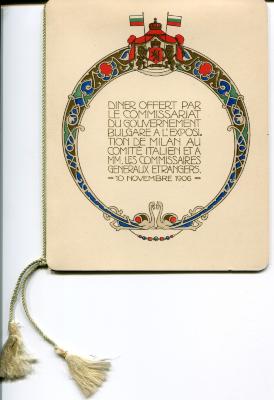 DINER OFFERT PAR
LE COMMISSARIAT
DU GOUVERNEMENT
BULGARE A L'EXPOSI-
TION DE MILAN AU
COMITÉ ITALIEN ET A
MM. LES COMMISSAIRES
GENERAUX ETRANGERS.
10 NOVEMBRE 1906